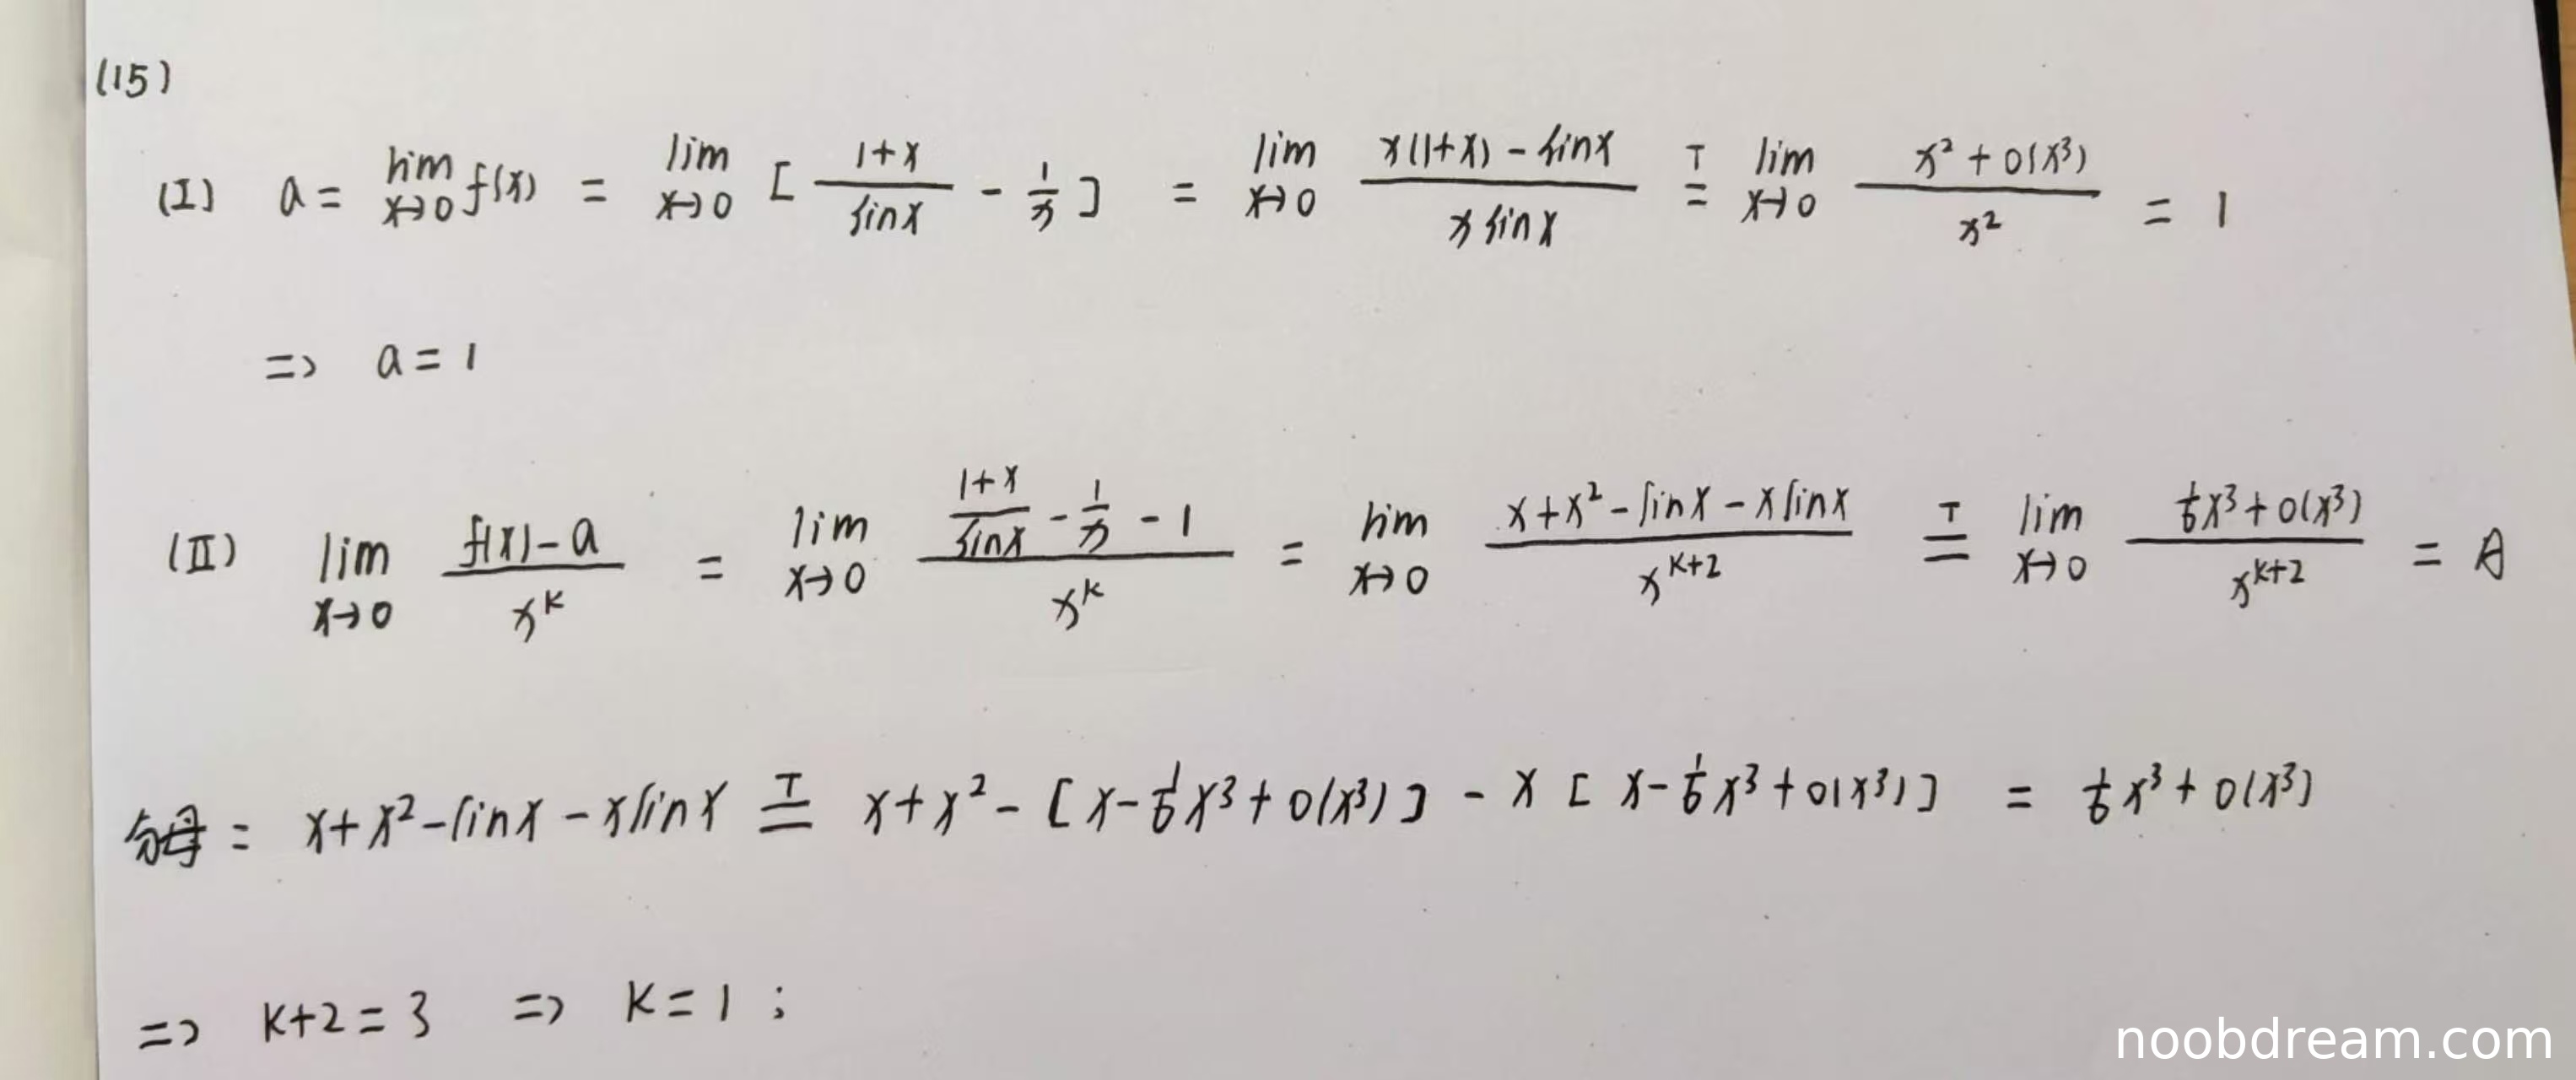 (15)
(I) a = lim x→0 f(x) = lim x→0 [ (1+x)/sinx - 1/x ] = lim x→0 (x(1+x) - sinx)/(x sinx) T= lim x→0 (x² + o(x³))/x² = 1
=> a = 1
(II) lim x→0 (f(x)-a)/x^k = lim x→0 ((1+x)/sinx - 1/x - 1)/x^k = lim x→0 (x+x²-sinx-xsinx)/x^(k+2) T= lim x→0 (1/6x³+o(x³))/x^(k+2) = A
分母 = x+x²-sinx-xsinx T= x+x²-[x-1/6x³+o(x³)] - x[x-1/6x³+o(x³)] = 1/6x³+o(x³)
=> k+2=3 => k=1 ;
noobdream.com